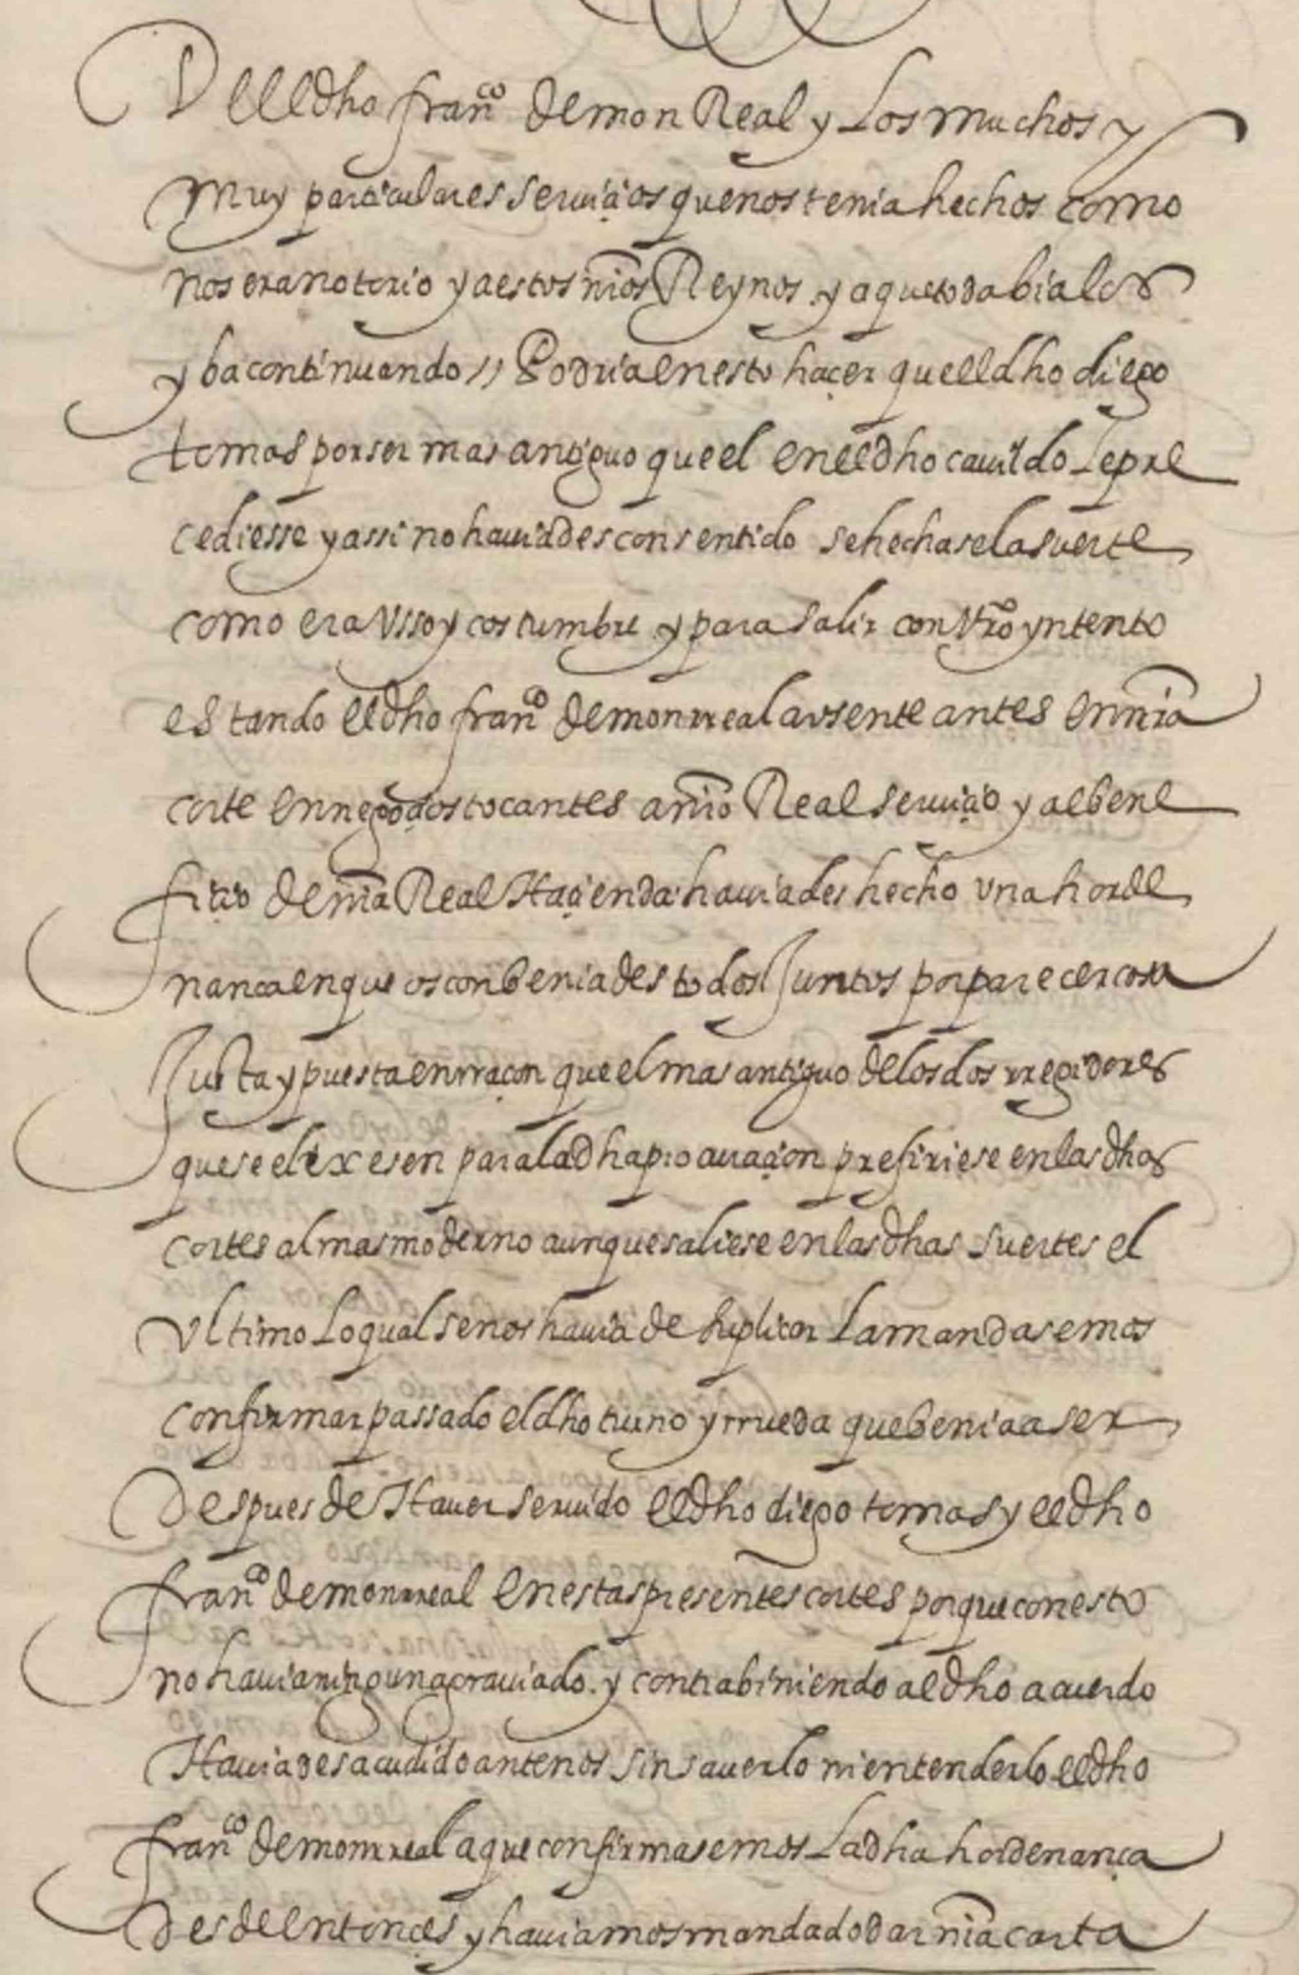 Del dho franco de mon Real y Los muchos y
muy particulares seruiçios que nos tenia hechos como
nos era notorio y a estos nros Reynos y a que todabia los
yba continuando // Podria en esto haçer quel dho diego
tomas por ser mas antiguo que el en el dho cauildo Le pre
cediesse y assi no hauiades consentido se hechase la suerte
como era Vsso y costumbre y para salir con Vro yntento
estando el dho franco de monrreal avsente antes en nra
corte en negoçios tocantes a nro Real seruiçio y al bene
fiçio de nra Real Haçienda hauiades hecho vna horde
nanca en que os conbeniades todos Juntos por pareçer cosa
Justa y puesta en rraçon que el mas antiguo de los dos rregidores
que se elixesen para la dha procuraçion prefiriese en las dhas
cortes al mas moderno aunque saliese en las dhas suertes el
Vltimo Lo qual se nos hauia de suplicar La mandasemos
confirmar passado el dho turno y rrueda que benia a ser
Despues de Hauer seruido el dho diego tomas y el dho
franco de monrreal en estas presentes cortes porque con esto
no hauia ningun agrauiado. y contrabiniendo al dho acuerdo
Hauiades acudido ante nos sin sauerlo ni entenderlo el dho
franco de monrreal a que confirmasemos La dha hordenança
desde entonçes y hauiamos mandado dar nra carta